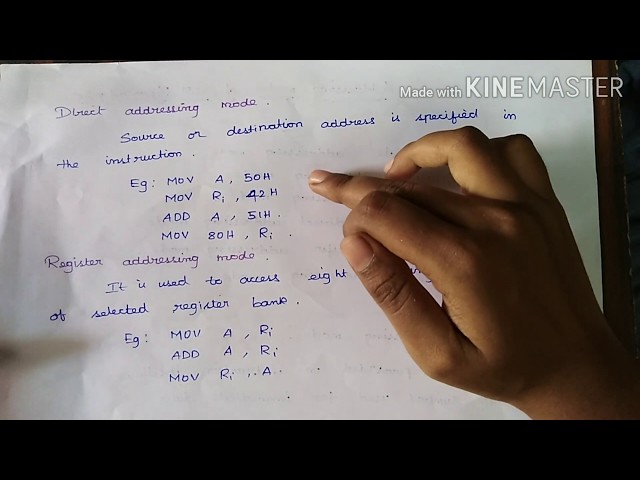 Made with KINEMASTER
Direct addressing mode.
Source or destination address is specified in
the instruction.
Eg: MOV A, 50H
MOV Ri, 42H
ADD A, 51H.
MOV 80H, Ri.
Register addressing mode.
It is used to access eight
of selected register bank.
Eg: MOV A, Ri
ADD A, Ri
MOV Ri, A.